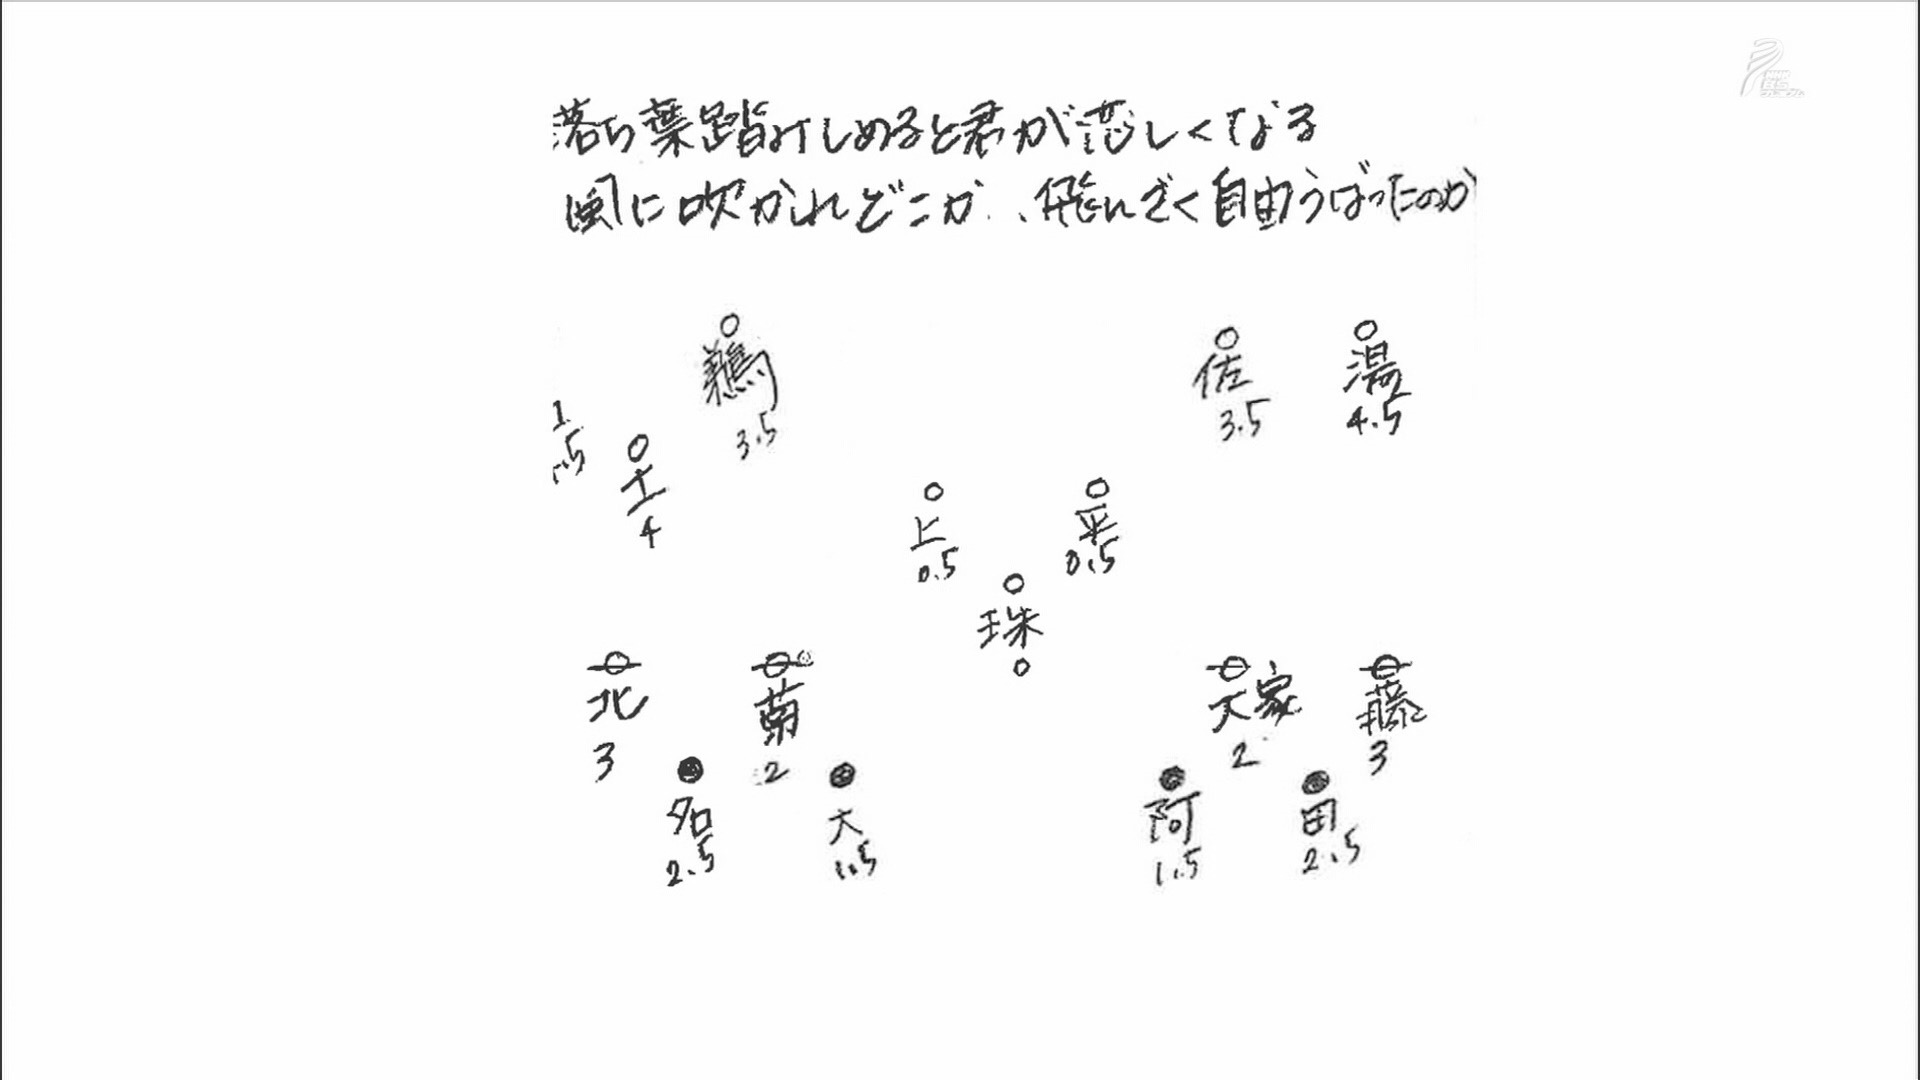 落ち葉踏みしめると君が恋しくなる
風に吹かれどこか、飛んざく自由うばったのか
鵜
3.5
佐
3.5
湯
4.5
1
.5
工
4
上
0.5
平
0.5
珠
0
北
3
菊
2
大家
2
藤
3
名
2.5
大
1.5
阿
1.5
田
2.5
NHK
BS
プレミアム